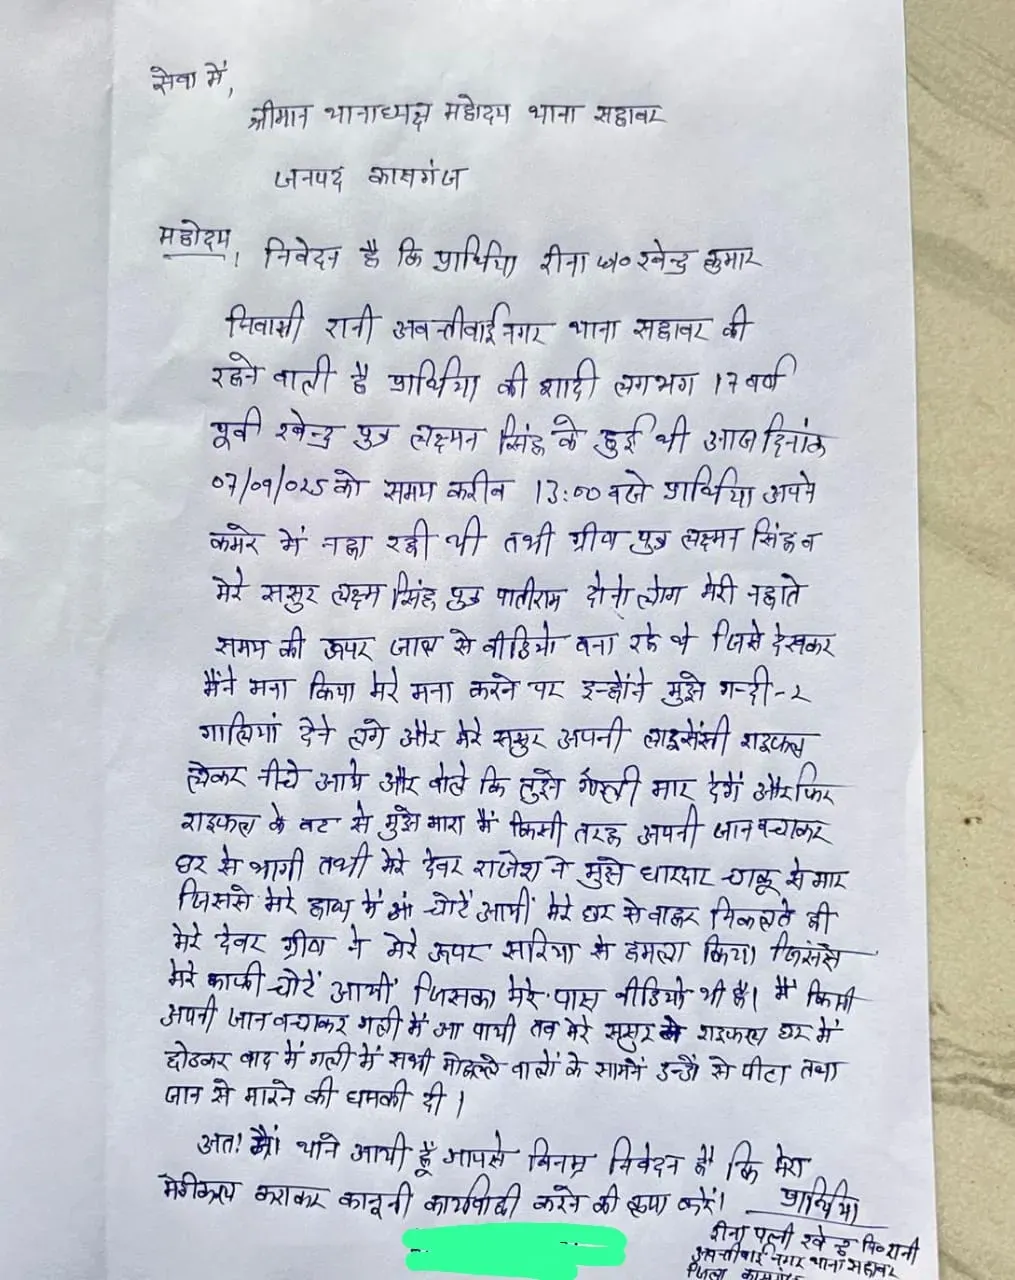 सेवा में,
श्रीमान थानाध्यक्ष महोदय थाना सहावर
जनपद कासगंज
महोदय, निवेदन है कि प्रार्थिया रीना प० रवेन्द्र कुमार
निवासी रानी अवन्तीवाई नगर थाना सहावर की
रहने वाली है प्रार्थिया की शादी लगभग 17 वर्ष
पूर्व रवेन्द्र पुत्र लक्ष्मन सिंह के हुई थी आज दिनांक
07/09/025 को समय करीब 13:00 वजे प्रार्थिया अपने
कमरे में नहा रही थी तभी ग्रीव पुत्र लक्ष्मन सिंह व
मेरे ससुर लक्ष्म सिंह पुत्र पातीराम दोनो लोग मेरी नहाते
समय की ऊपर जाल से वीडियो वना रहे थे जिसे देखकर
मैंने मना किया मेरे मना करने पर इन्होंने मुझे गन्दी-2
गालियां देने लगे और मेरे ससुर अपनी लाइसेंसी राइफल
लेकर नीचे आये और वोले कि तुझे गोली मार देगें और फिर
राइफल के वट से मुझे मारा मैं किसी तरह अपनी जान वचाकर
घर से भागी तभी मेरे देवर राजेश ने मुझे धारदार चाकू से मार
जिससे मेरे हाथ में चोटें आयीं मेरे घर से वाहर निकलते ही
मेरे देवर ग्रीव ने मेरे ऊपर सरिया से हमला किया जिससे
मेरे काफी चोटें आयीं जिसका मेरे पास वीडियो भी है। मैं किसी
अपनी जान वचाकर गली में आ पायी तव मेरे ससुर ने राइफल घर में
छोडकर वाद में गली में सभी मोहल्ले वालों के सामने डन्डों से पीटा तथा
जान से मारने की धमकी दी।
अतः मैं थाने आयी हूँ आपसे विनम्र निवेदन है कि मेरा
मेडीकल कराकर कानूनी कार्यवाही करने की कृपा करें।
प्रार्थिया
रीना पत्नी रवेन्द्र नि० रानी
अवन्तीवाई नगर थाना सहावर
जिला कासगंज